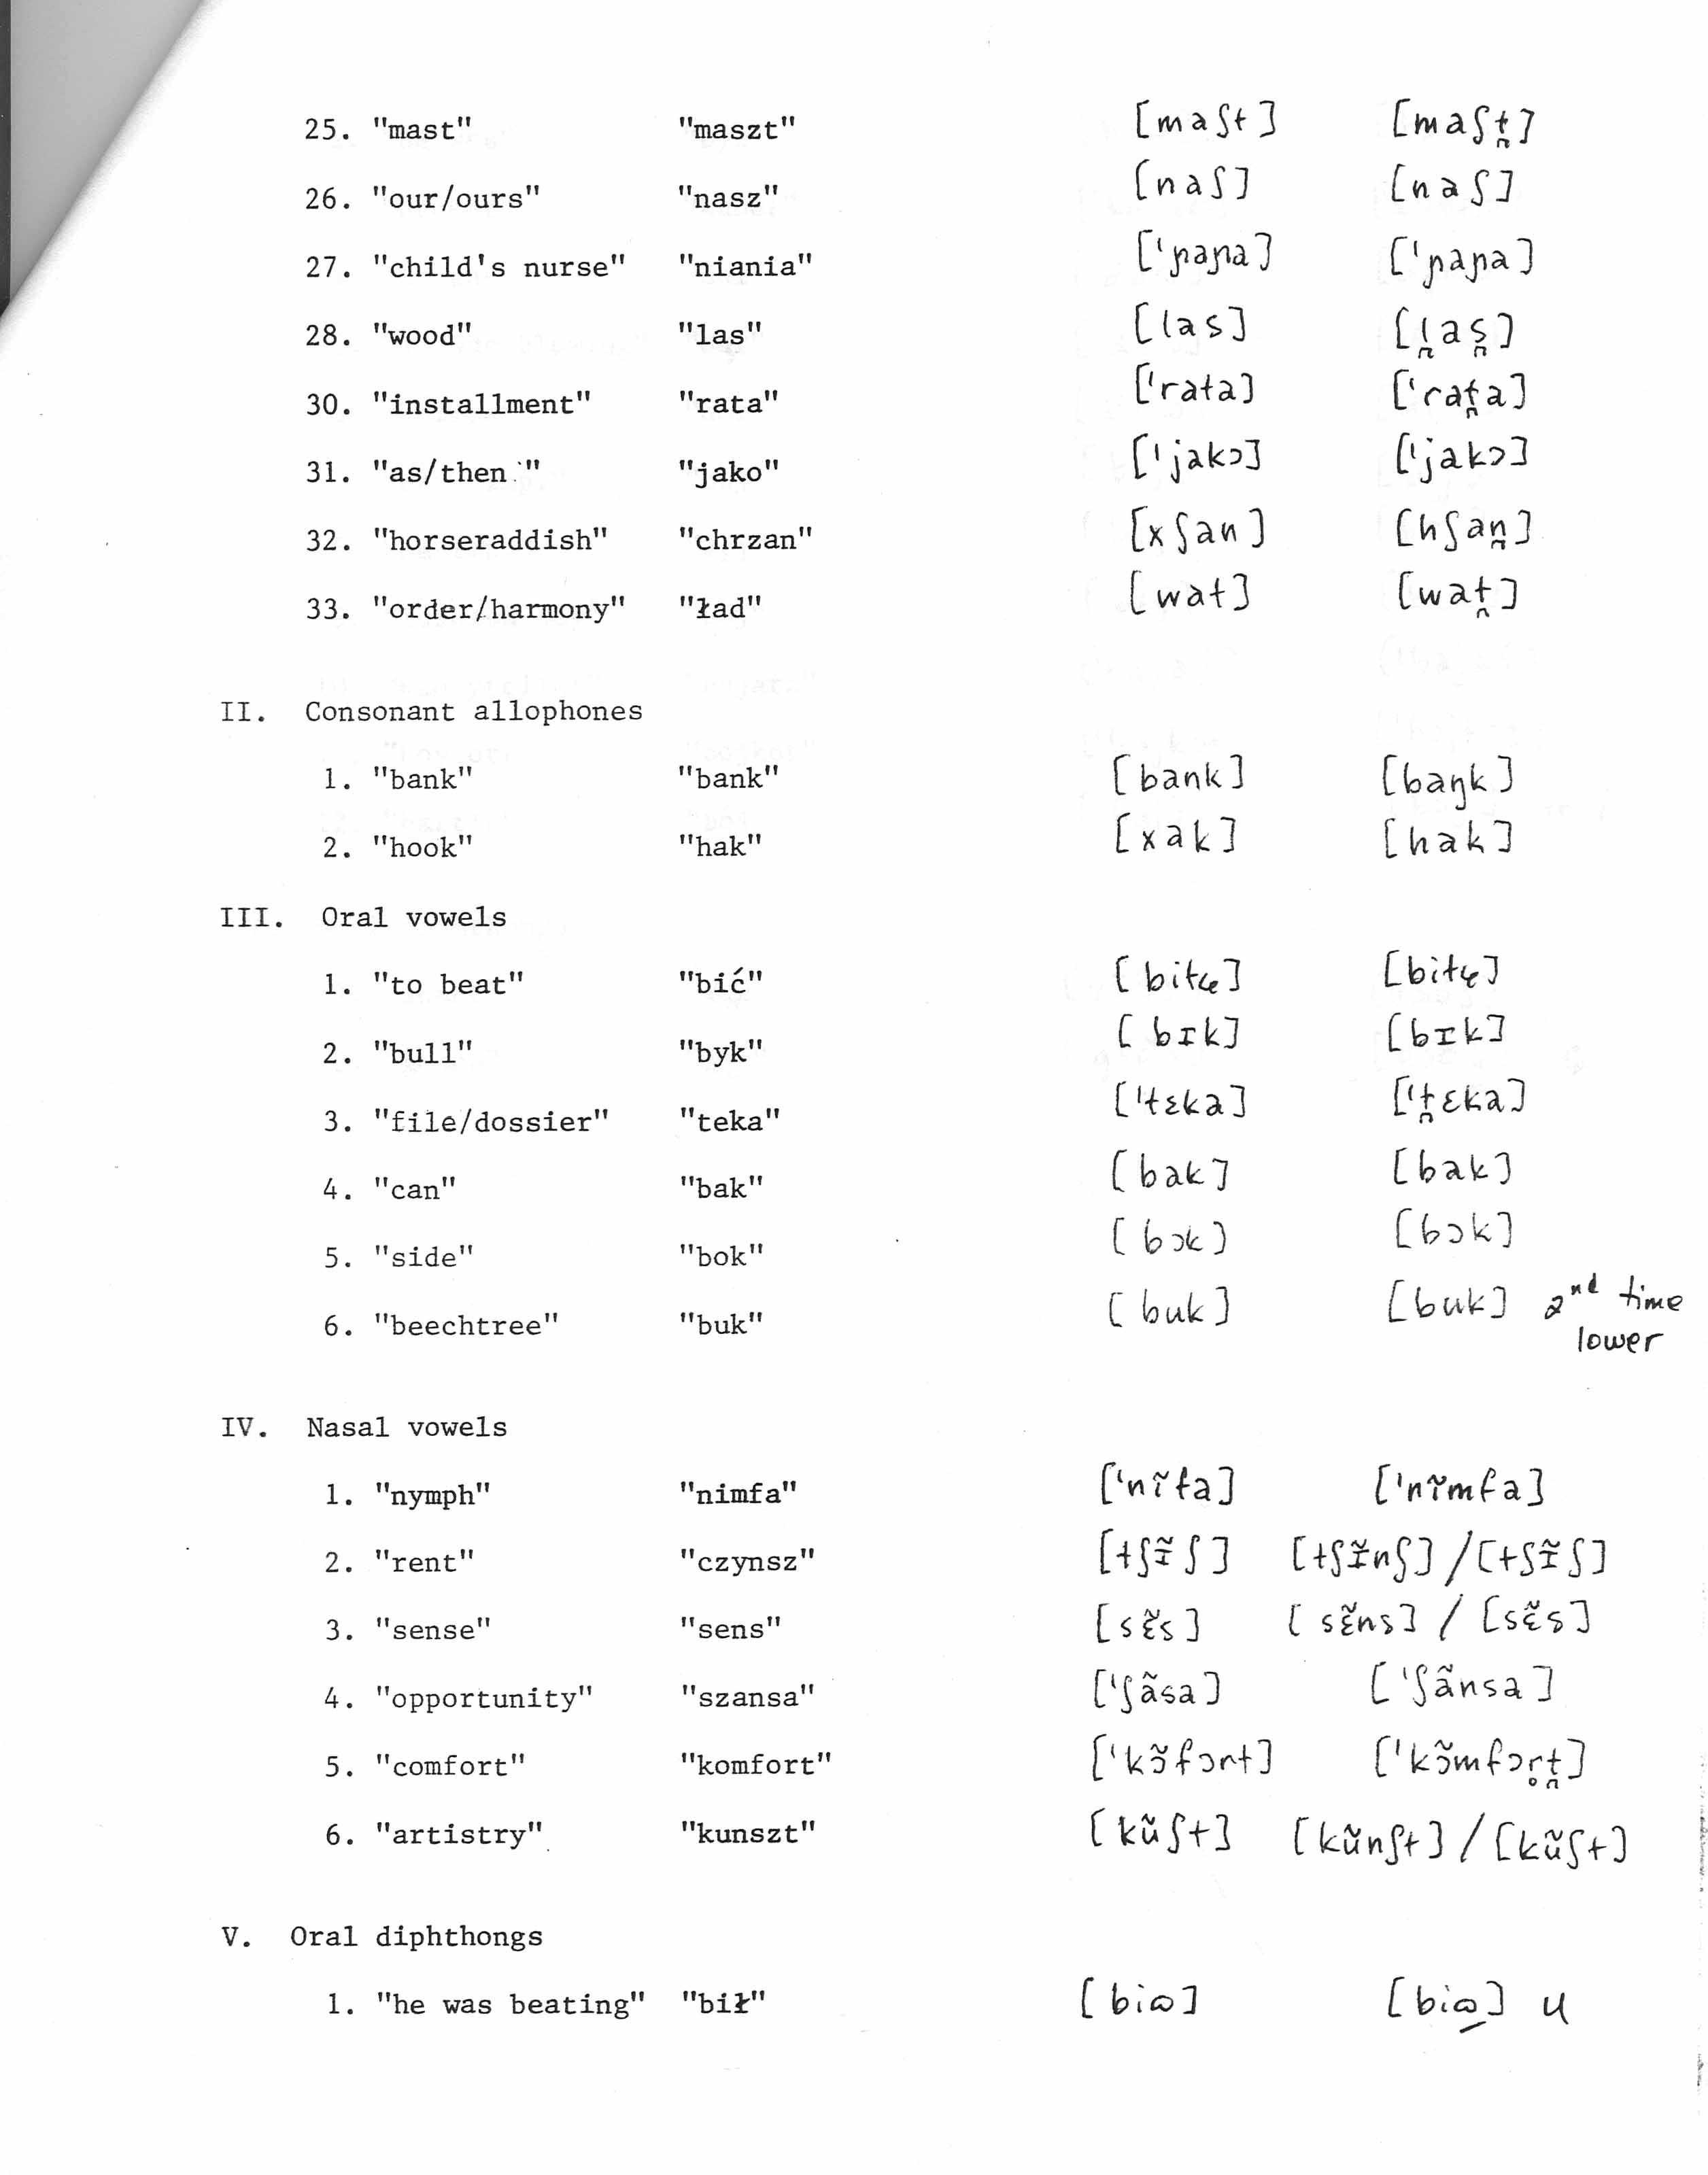 25. "mast" "maszt" [maʃt] [maʃt̪]
26. "our/ours" "nasz" [naʃ] [naʃ]
27. "child's nurse" "niania" ['ɲaɲa] ['ɲaɲa]
28. "wood" "las" [las] [l̪as̪]
30. "installment" "rata" ['rata] ['rat̪a]
31. "as/then" "jako" ['jakɔ] ['jakɔ]
32. "horseraddish" "chrzan" [xʃan] [hʃan̪]
33. "order/harmony" "ład" [wat] [wat̪]
II. Consonant allophones
1. "bank" "bank" [bank] [baŋk]
2. "hook" "hak" [xak] [hak]
III. Oral vowels
1. "to beat" "bić" [bitɕ] [bitɕ]
2. "bull" "byk" [bɪk] [bɪk]
3. "file/dossier" "teka" ['tɛka] ['t̪ɛka]
4. "can" "bak" [bak] [bak]
5. "side" "bok" [bɔk] [bɔk]
6. "beechtree" "buk" [buk] [buk] 2nd time
lower
IV. Nasal vowels
1. "nymph" "nimfa" ['nĩfa] ['nĩmfa]
2. "rent" "czynsz" [tʃɪ̃ʃ] [tʃɪ̃nʃ] / [tʃɪ̃ʃ]
3. "sense" "sens" [sɛ̃s] [sɛ̃ns] / [sɛ̃s]
4. "opportunity" "szansa" ['ʃãsa] ['ʃãnsa]
5. "comfort" "komfort" ['kɔ̃fɔrt] ['kɔ̃mfɔr̥t̪]
6. "artistry" "kunszt" [kũʃt] [kũnʃt] / [kũʃt]
V. Oral diphthongs
1. "he was beating" "bił" [biɷ] [biɷ] u